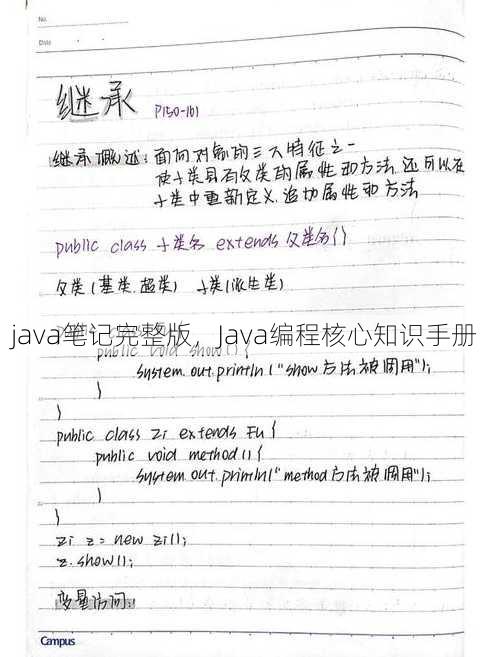 No.
Date
继承 P150-161
继承概述：面向对象的三大特征之一
使子类具有父类的属性和方法，还可以在
子类中重新定义，追加属性和方法
public class 子类名 extends 父类名{}
父类(基类.超类) 子类(派生类)
java笔记完整版，Java编程核心知识手册
public void show(){
system.out.println("show方法被调用");
}
}
public class Zi extends Fu{
public void method(){
system.out.println("method方法被调用");
}
}
Zi z = new Zi();
z.show();
变量访问：
Campus